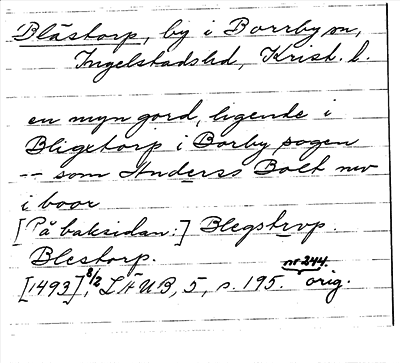 Blästorp, by i Borrby sn,
Ingelstads hd, Krist. l.
en myn gord, ligende i
Bligetorp i Borby sogen
-- som Anderss Bolt nw
i boor
[På baksidan:] Blegstrvp.
Blestorp.
[1493] 8/2, LÄUB, 5, s. 195. nr 244. orig.